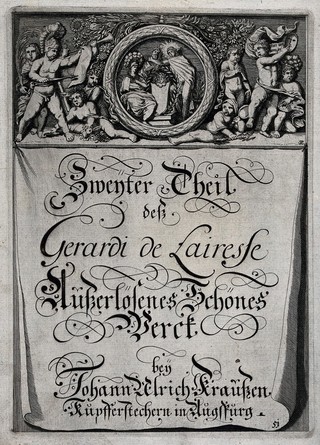 Zweyter Theil
deß
Gerardi de Lairesse
Außerlösenes Schönes
Werck.
bey
Johann Ulrich Kraußen.
Kupfferstechern in Augspurg.